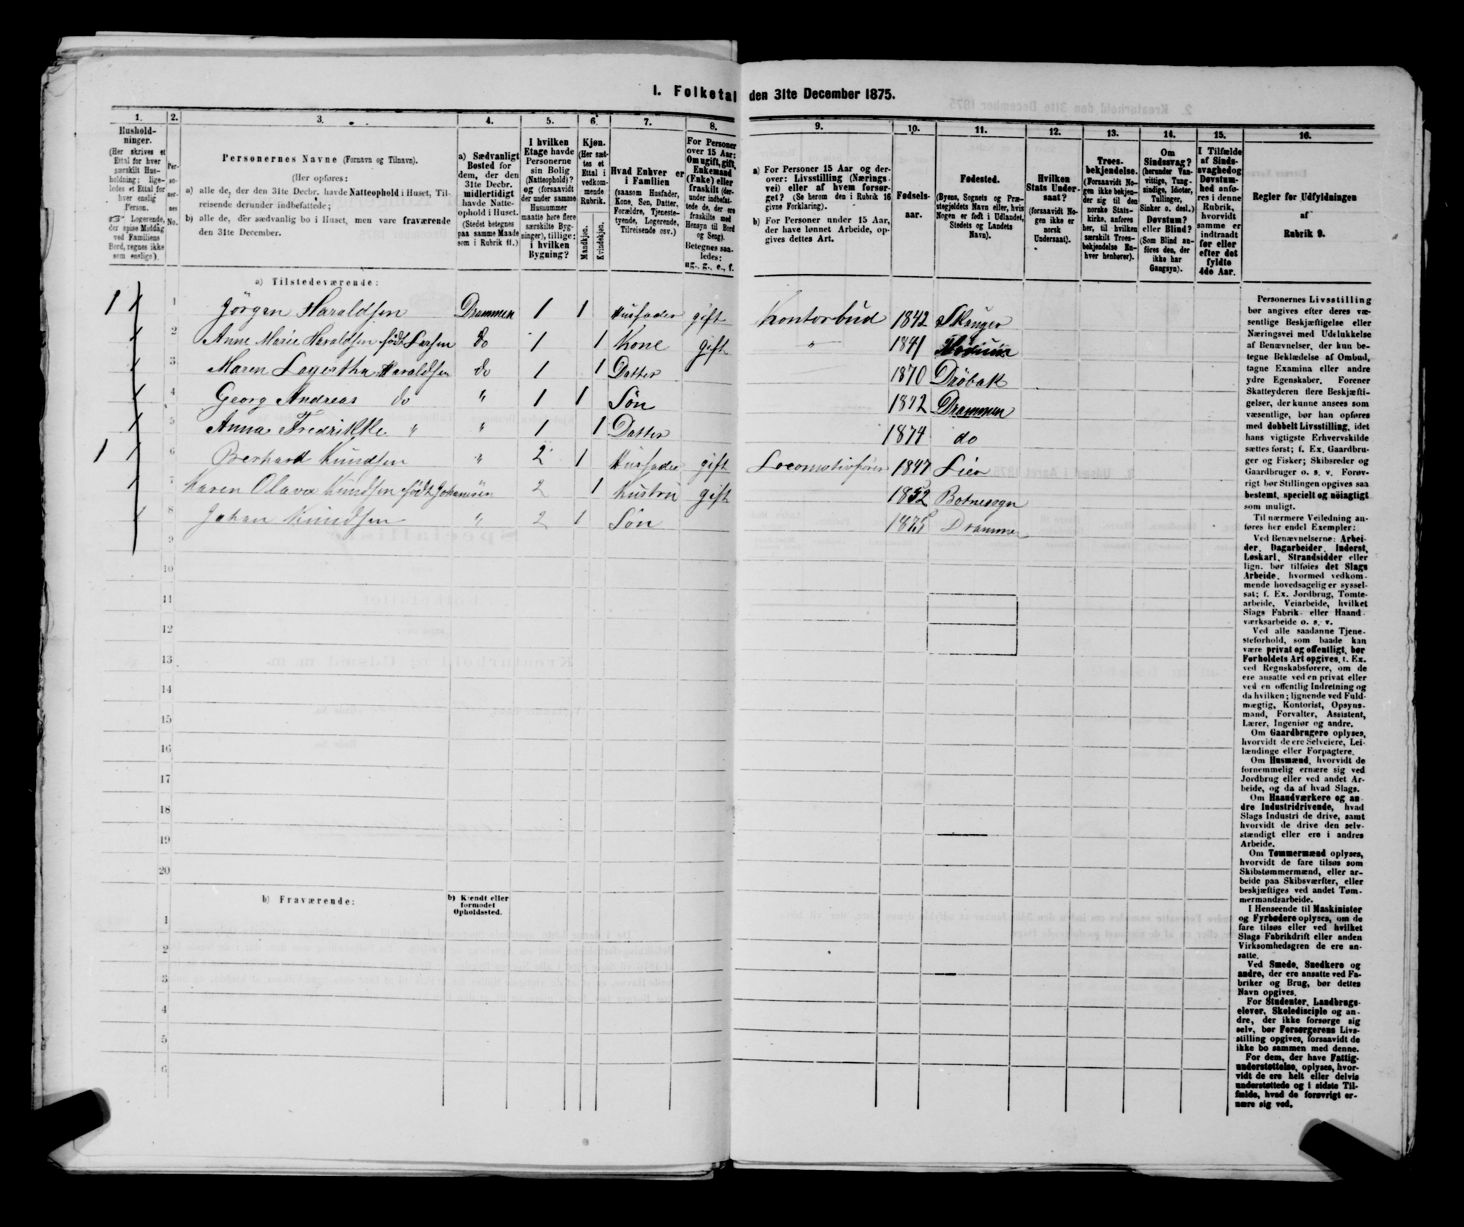 I. Folketal den 31te December 1875.
1. 2. 3. 4. 5. 6. 7. 8. 9. 10. 11. 12. 13. 14. 15. 16.
Husholdninger.
(Her skrives et Ettal for hver særskilt Husholdning; ligeledes et Ettal for hver enslig Person.
Logerende, der spise Middag ved Familiens Bord, regnes ikke som enslige).
Personernes No.
Personernes Navne (Fornavn og Tilnavn).
(Her opføres:
a) alle de, der den 31te Decbr. havde Natteophold i Huset, Tilreisende derunder indbefattede;
b) alle de, der sædvanlig bo i Huset, men vare fraværende den 31te December.
a) Sædvanligt Bosted for dem, der den 31te Decbr. midlertidigt havde Natteophold i Huset. (Stedet betegnes paa samme Maade som i Rubrik 11.)
I hvilken Etage havde Personerne sin Bolig (Natteophold)? og (forsaavidt der under samme Husnummer maatte høre flere særskilte Bygninger), tillige: i hvilken Bygning?
Kjøn. (Her sættes et Ettal i vedkommende Rubrik.
Mandkjøn. Kvindekjøn.
Hvad Enhver er i Familien (saasom Husfader, Kone, Søn, Datter, Forældre, Tjenestetyende, Logerende, Tilreisende osv.)
For Personer over 15 Aar: Om ugift, gift, Enkemand (Enke) eller fraskilt (derunder indbefattede de, der ere fraskilte med Hensyn til Bord og Seng). Betegnes saaledes: ug., g., e., f.
a) For Personer 15 Aar og derover: Livsstilling (Næringsvei) eller af hvem forsørget? (Se herom den i Rubrik 16 givne Forklaring).
b) For Personer under 15 Aar, der have lønnet Arbeide, opgives dettes Art.
Fødselsaar.
Fødested. (Byens, Sognets og Præstegjeldets Navn eller, hvis Nogen er født i Udlandet, Stedets og Landets Navn).
Hvilken Stats Undersaat? (forsaavidt Nogen ikke er norsk Undersaat).
Troesbekjendelse. (Forsaavidt Nogen ikke bekjender sig til den norske Statskirke, anføres her, til hvilken særskilt Troesbekjendelse Enhver henhører).
Om Sindssvag? (herunder Vanvittige, Tungsindige, Idioter, Tullinger, Sinker o. desl.) Døvstum? eller Blind? (Som Blind anføres den, der ikke har Gangsyn).
I Tilfælde af Sindssvaghed og Døvstumhed anføres i denne Rubrik, hvorvidt samme er indtraadt før eller efter det fyldte 4de Aar.
Regler for Udfyldningen af Rubrik 9.
a) Tilstedeværende:
1 1 Jörgen Haraldsen Drammen 1 1 Husfader gift Kontorbud 1842 Skauger
2 Anne Marie Haraldsen född Larsen do 1 1 Kone gift " 1841 Modum
3 Maren Lagertha Haraldsen do 1 1 Datter 1870 Dröbak
4 Georg Andreas do " 1 1 Sön 1872 Drammen
5 Anna Fredrikke " " 1 1 Datter 1874 do
1 6 Berhard Knudsen " 2 1 Husfader gift Locomotivfører 1847 Lier
7 Karen Olava Knudsen född Johansen " 2 1 Hustru gift 1852 Botnesogn
8 Johan Knudsen " 2 1 Sön 1875 Drammen
9
10
11
12
13
14
15
16
17
18
19
20
b) Fraværende:
b) Kjendt eller formodet Opholdssted.
1
2
3
4
5
6
Personernes Livsstilling bør angives efter deres væsentlige Beskjæftigelse eller Næringsvei med Udelukkelse af Benævnelser, der kun betegne Beklædelse af Ombud, tagne Examina eller andre ydre Egenskaber. Forener Skatteyderen flere Beskjæftigelser, der kunne ansees som væsentlige, bør han opføres med dobbelt Livsstilling, idet hans vigtigste Erhvervskilde sættes først; f. Ex. Gaardbruger og Fisker; Skibsreder og Gaardbruger o. s. v. Forøvrigt bør Stillingen opgives saa bestemt, specielt og nøiagtigt som muligt.
Til nærmere Veiledning anføres her endel Exempler:
Ved Benævnelserne: Arbeider, Dagarbeider, Inderst, Løskarl, Strandsidder eller lign. bør tilføies det Slags Arbeide, hvormed vedkommende hovedsagelig er sysselsat; f. Ex. Jordbrug, Tomtearbeide, Veiarbeide, hvilket Slags Fabrik- eller Haandværksarbeide o. s. v.
Ved alle saadanne Tjenesteforhold, som baade kan være privat og offentligt, bør Forholdets Art opgives, t. Ex. ved Regnskabsførere, om de ere ansatte ved en privat eller ved en offentlig Indretning og da hvilken; lignende ved Fuldmægtig, Kontorist, Opsynsmand, Forvalter, Assistent, Lærer, Ingeniør og andre.
Om Gaardbrugere oplyses, hvorvidt de ere Selveiere, Leilændinge eller Forpagtere.
Om Husmænd, hvorvidt de fornemmelig ernære sig ved Jordbrug eller ved andet Arbeide, og da af hvad Slags.
Om Haandværkere og andre Industridrivende, hvad Slags Industri de drive, samt hvorvidt de drive den selvstændigt eller ere i andres Arbeide.
Om Tømmermænd oplyses, hvorvidt de fare tilsøs som Skibstømmermænd, eller arbeide paa Skibsværfter, eller beskjæftiges ved andet Tømmermandsarbeide.
I Henseende til Maskinister og Fyrbødere oplyses, om de fare tilsøs eller ved hvilket Slags Fabrikdrift eller anden Virksomhedsgren de ere ansatte.
Ved Smede, Snedkere og andre, der ere ansatte ved Fabriker og Brug, bør dettes Navn opgives.
For Studenter, Landbrugselever, Skoledisciple og andre, der ikke forsørge sig selv, bør Forsørgerens Livsstilling opgives, forsaavidt de ikke bo sammen med denne.
For dem, der have Fattigunderstøttelse, oplyses, hvorvidt de ere helt eller delvis understøttede og i sidste Tilfælde, hvad de forøvrigt ernære sig ved.